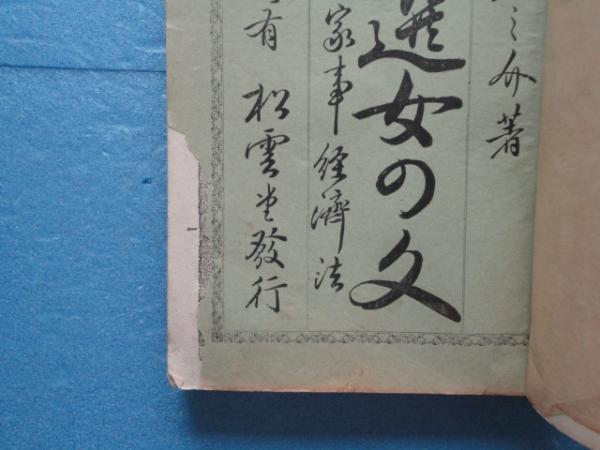 之介著
選女の文
家事経濟法
有 松雲堂發行